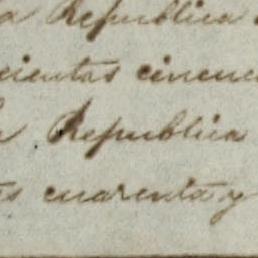 la Republica
cientas cincue
la Republica
as cuarenta y